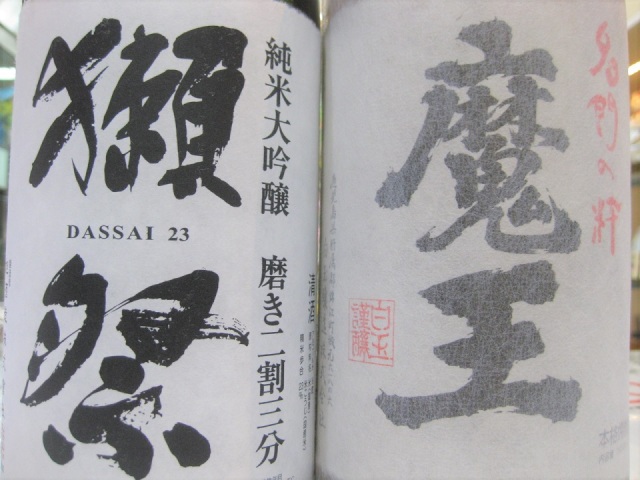 獺祭
DASSAI 23
純米大吟醸 磨き二割三分
清酒
魔王
名門の粋
白玉
謹醸